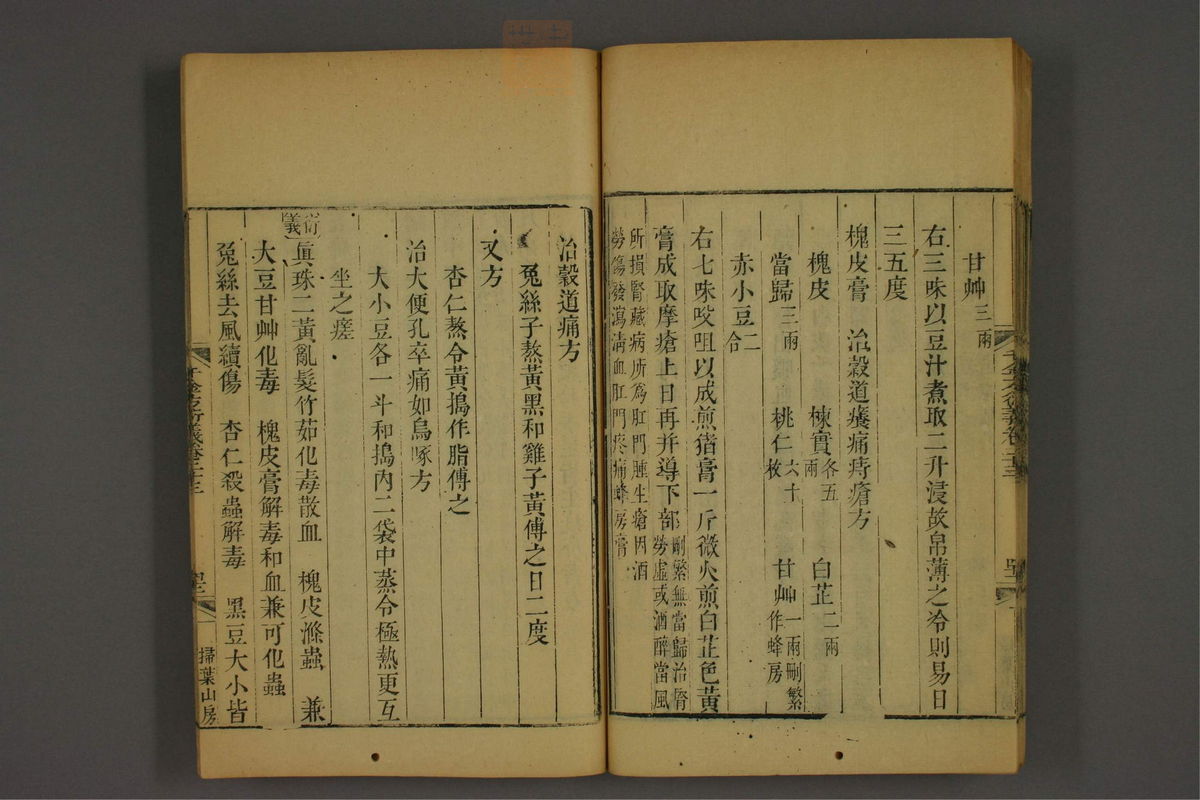 甘艸三兩
右三味以豆汁煮取二升浸故帛薄之冷則易日
三五度
槐皮膏 治穀道癢痛痔瘡方
槐皮 楝實各五兩 白芷二兩
當歸三兩 桃仁六十枚 甘艸一兩刪繁作蜂房
赤小豆二合
右七味㕮咀以成煎猪膏一斤微火煎白芷色黃
膏成取摩瘡上日再并導下部刪繁無當歸治腎勞虛或酒醉當風
所損腎藏病所為肛門腫生瘡因酒勞傷發瀉清血肛門疼痛蜂房膏
千金方衍義卷二十三
治穀道痛方
兔絲子熬黃黑和雞子黃傅之日二度
又方
杏仁熬令黃搗作脂傅之
治大便孔卒痛如鳥啄方
大小豆各一斗和搗內二袋中蒸令極熱更互
坐之瘥
衍義 眞珠二黃亂髮竹茹化毒散血 槐皮滌蟲 兼
大豆甘艸化毒 槐皮膏解毒和血兼可化蟲
兔絲去風續傷 杏仁殺蟲解毒 黑豆大小皆
千金方衍義卷二十三
掃葉山房